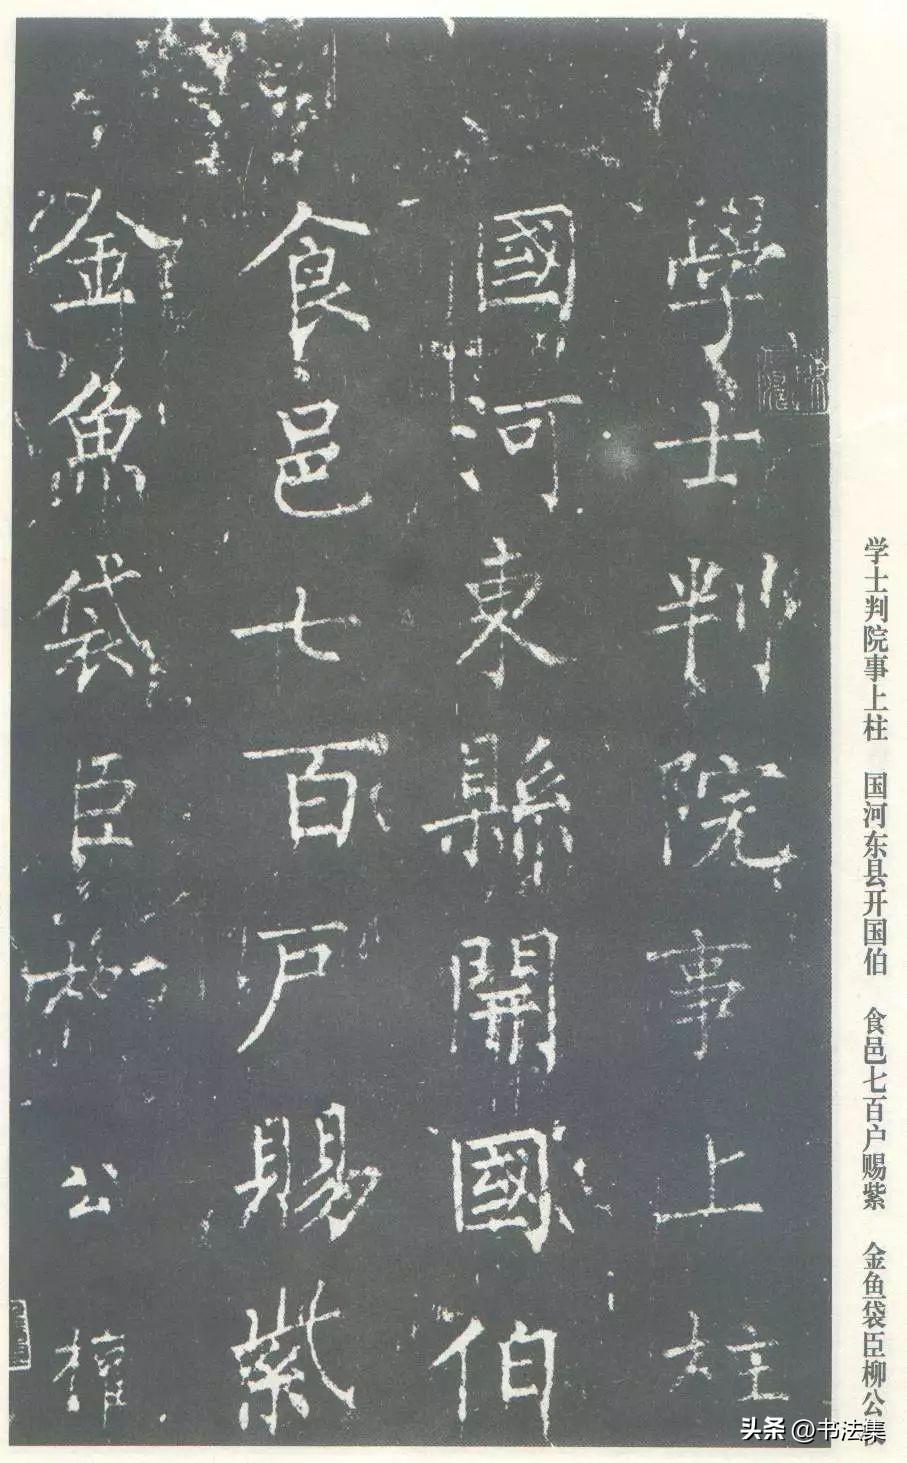 學士判院事上柱
國河東縣開國伯
食邑七百戶賜紫
金魚袋臣柳公權
学士判院事上柱 国河东县开国伯 食邑七百户赐紫 金鱼袋臣柳公
头条 @书法集